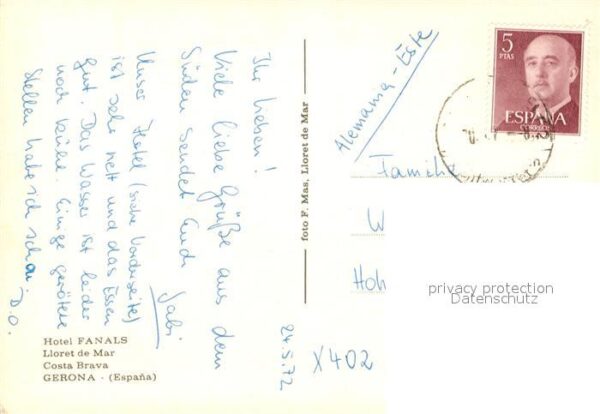 Ihr lieben!
Viele liebe Grüße aus dem
Süden sendet Euch
Gabi
Unser Hotel (siehe Vorderseite)
ist sehr nett und das Essen
gut. Das Wasser ist leider
noch kühl. Einige gerötete
Stellen habe ich schon
D.O.
24.5.72
Hotel FANALS
Lloret de Mar
Costa Brava
GERONA - (España)
foto F. Mas, Lloret de Mar
Alemania-Este
5
PTAS
ESPAÑA
CORREOS
Famili
W
Hoh
X402
privacy protection
Datenschutz